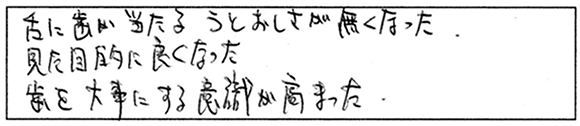 舌に歯が当たるうとおしさが無くなった.
見た目的に良くなった
歯を大事にする意識が高まった.